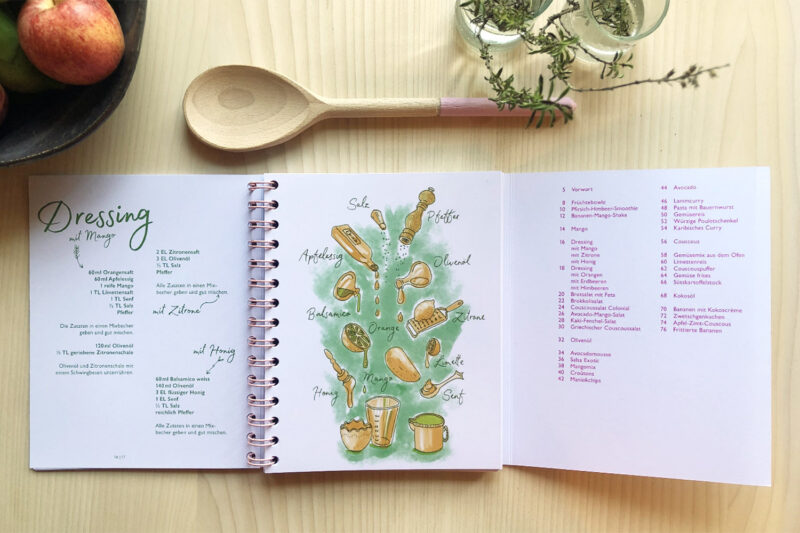 Dressing
mit Mango
60 ml Orangensaft
60 ml Apfelessig
1 reife Mango
1 TL Limettensaft
1 TL Senf
½ TL Salz
Pfeffer
Die Zutaten in einem Mixbecher
geben und gut mischen.
120 ml Olivenöl
½ TL geriebene Zitronenschale
Olivenöl und Zitronenschale mit
einem Schwingbesen unterrühren.
16 | 17
2 EL Zitronensaft
3 EL Olivenöl
½ TL Salz
Pfeffer
Alle Zutaten in einen Mix-
becher geben und gut mischen.
mit Zitrone
mit Honig
60 ml Balsamico weiss
140 ml Olivenöl
3 EL flüssiger Honig
1 EL Senf
½ TL Salz
reichlich Pfeffer
Alle Zutaten in einen Mix-
becher geben und gut mischen.
Salz
Pfeffer
Apfelessig
Olivenöl
Balsamico
Orange
Zitrone
Limette
Mango
Honig
Senf
5 Vorwort
8 Früchtebowle
10 Pfirsich-Himbeer-Smoothie
12 Bananen-Mango-Shake
14 Mango
16 Dressing
mit Mango
mit Zitrone
mit Honig
18 Dressing
mit Orangen
mit Erdbeeren
mit Himbeeren
20 Brotsalat mit Feta
22 Brokkolisalat
24 Couscoussalat Colonial
26 Avocado-Mango-Salat
28 Kaki-Fenchel-Salat
30 Griechischer Couscoussalat
32 Olivenöl
34 Avocadomousse
36 Salsa Exotic
38 Mangomix
40 Croûtons
42 Maniokchips
44 Avocado
46 Lammcurry
48 Pasta mit Bauernwurst
50 Gemüsereis
52 Würzige Pouletschenkel
54 Karibisches Curry
56 Couscous
58 Gemüsemix aus dem Ofen
60 Limettenreis
62 Couscouspuffer
64 Gemüse frites
66 Süsskartoffelstock
68 Kokosöl
70 Bananen mit Kokoscrème
72 Zwetschgenkuchen
74 Apfel-Zimt-Couscous
76 Frittierte Bananen